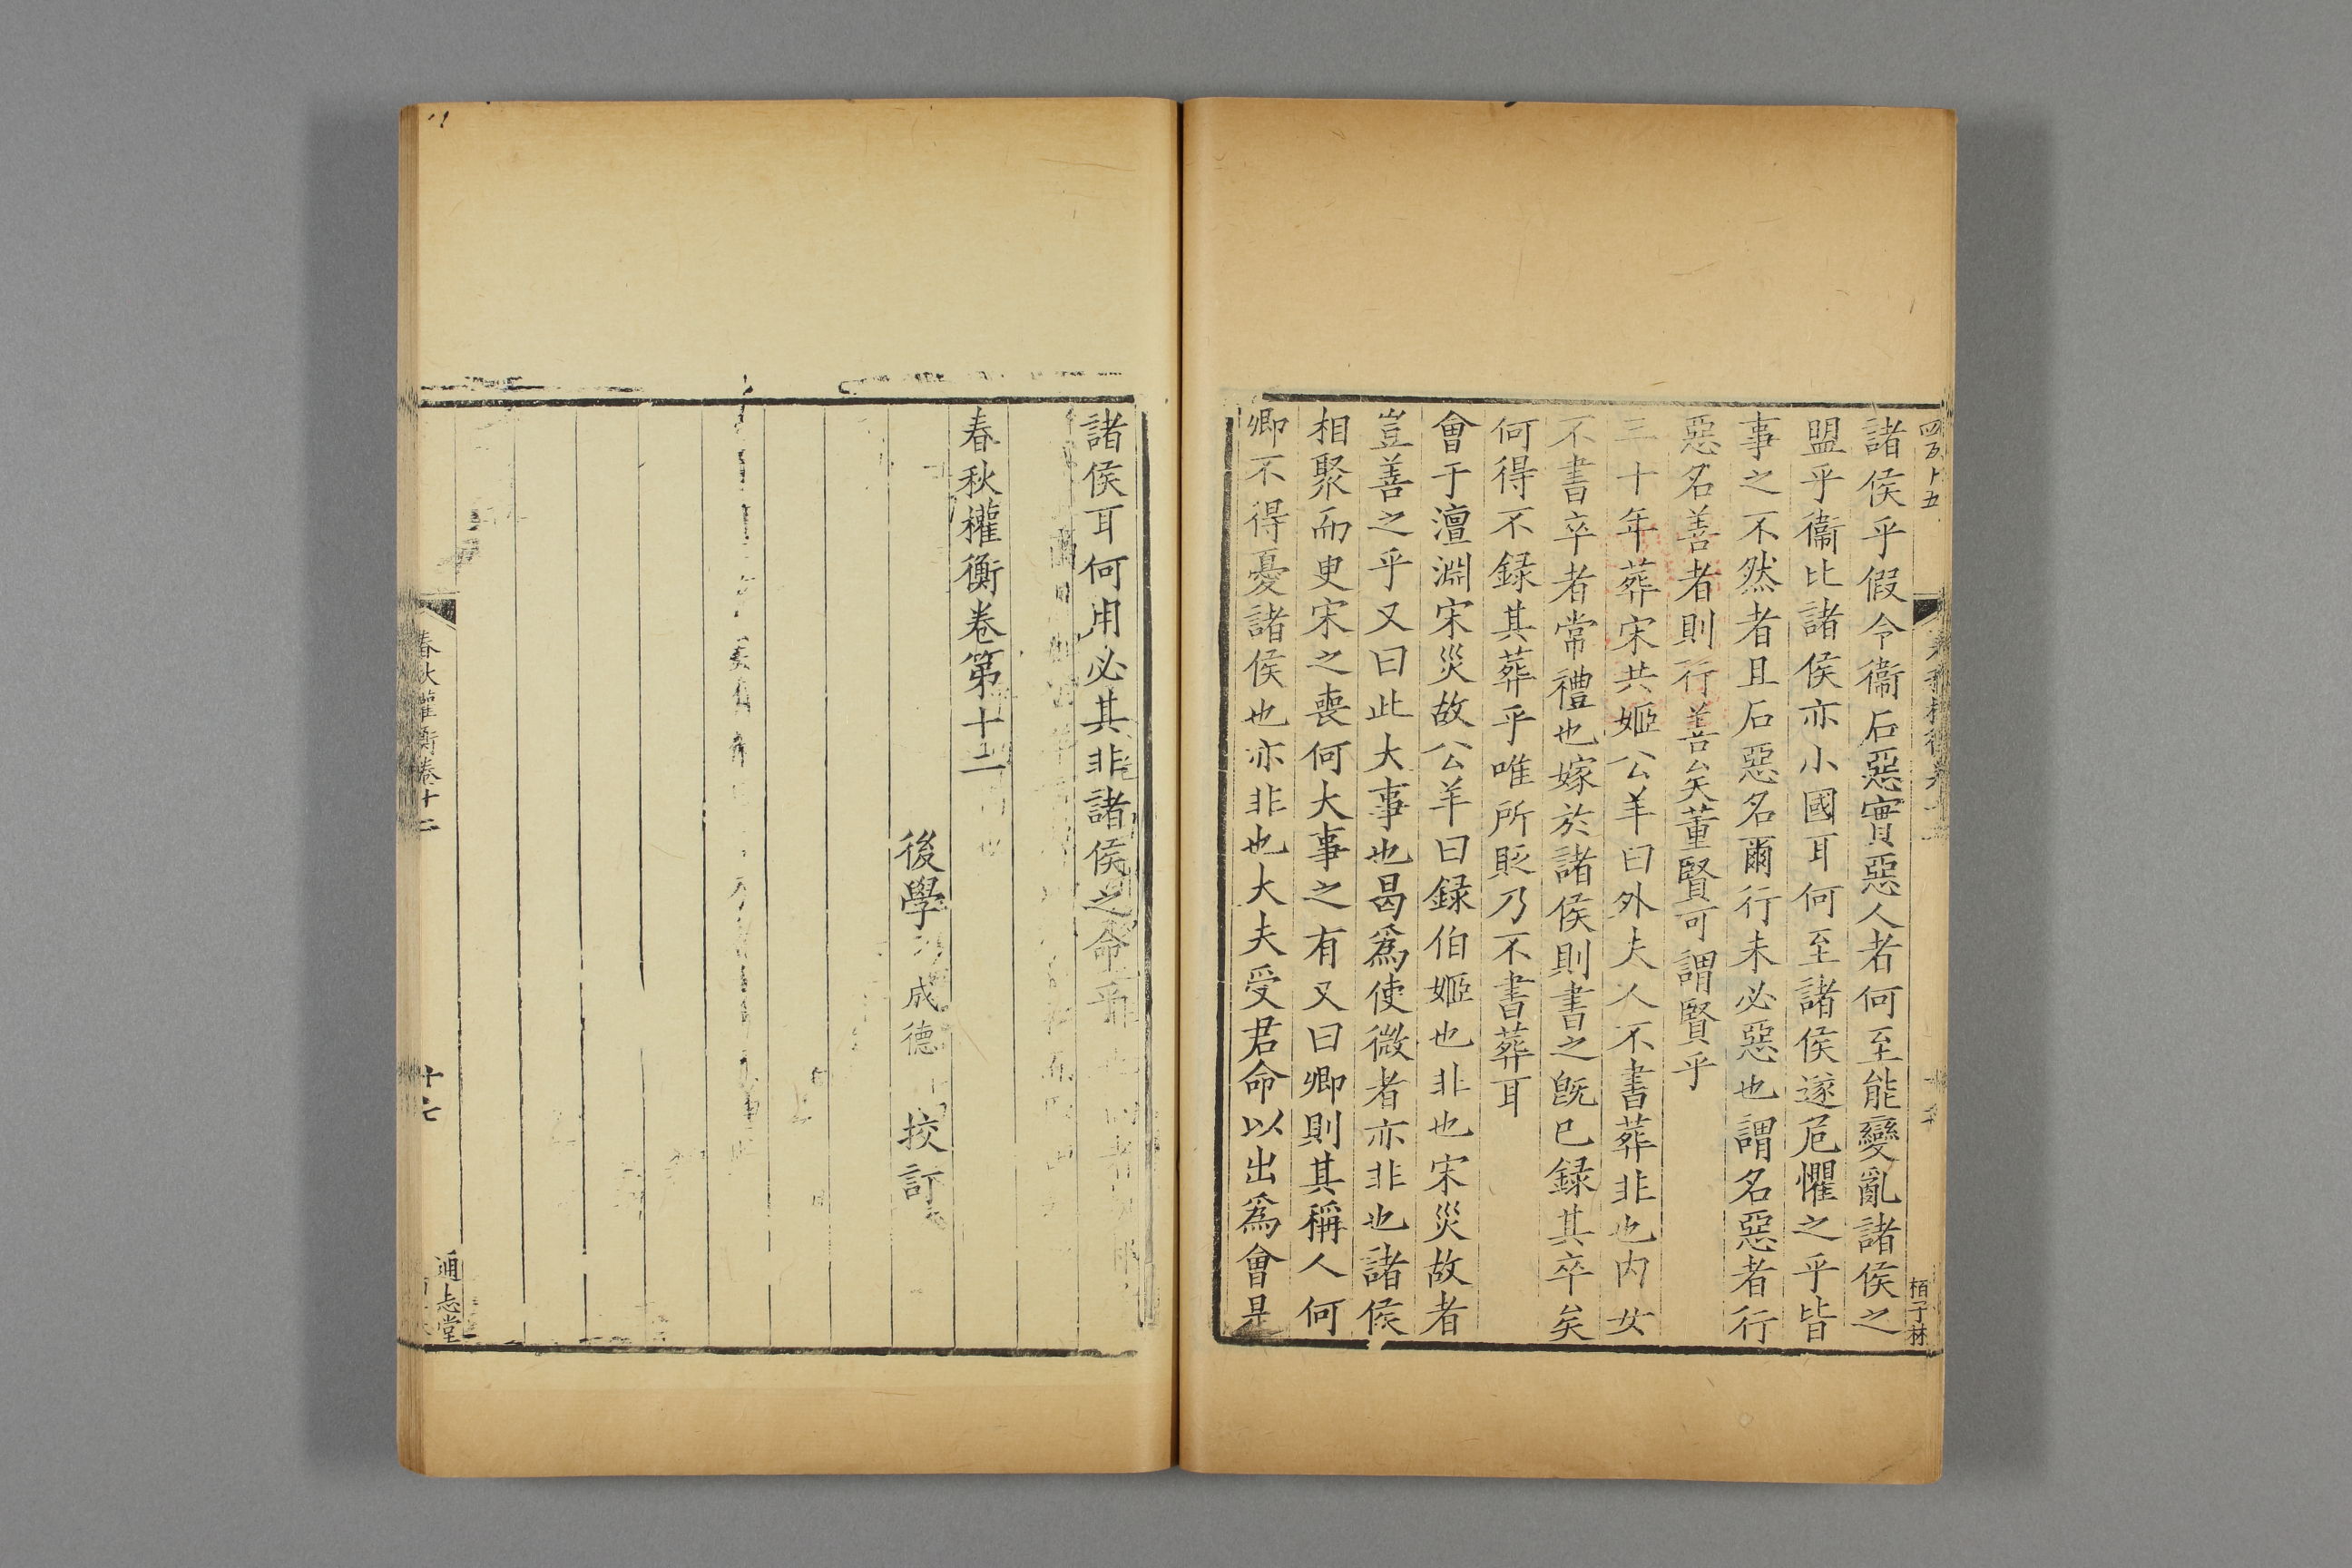 諸侯乎假令衞石惡實惡人者何至能變亂諸侯之
盟乎衞比諸侯亦小國耳何至諸侯遂危懼之乎皆
事之不然者且石惡名惡名爾行未必惡也謂名惡者行
惡名善者則行善矣董賢可謂賢乎
三十年葬宋共姬公羊曰外夫人不書葬非也内女
不書卒者常禮也嫁於諸侯則書之既巳録其卒矣
何得不録其葬乎唯所貶乃不書葬耳
會于澶淵宋災故公羊曰録伯姬也非也宋災故者
豈善之乎又曰此大事也曷爲使微者亦非也諸侯
相聚而更宋之喪何大事之有又曰卿則其稱人何
卿不得憂諸侯也亦非也大夫受君命以出爲會是
栢子林
諸侯耳何用必其非諸侯之命乎
春秋權衡卷第十二
後學成德挍訂
春秋權衡卷十二
十七
通志堂